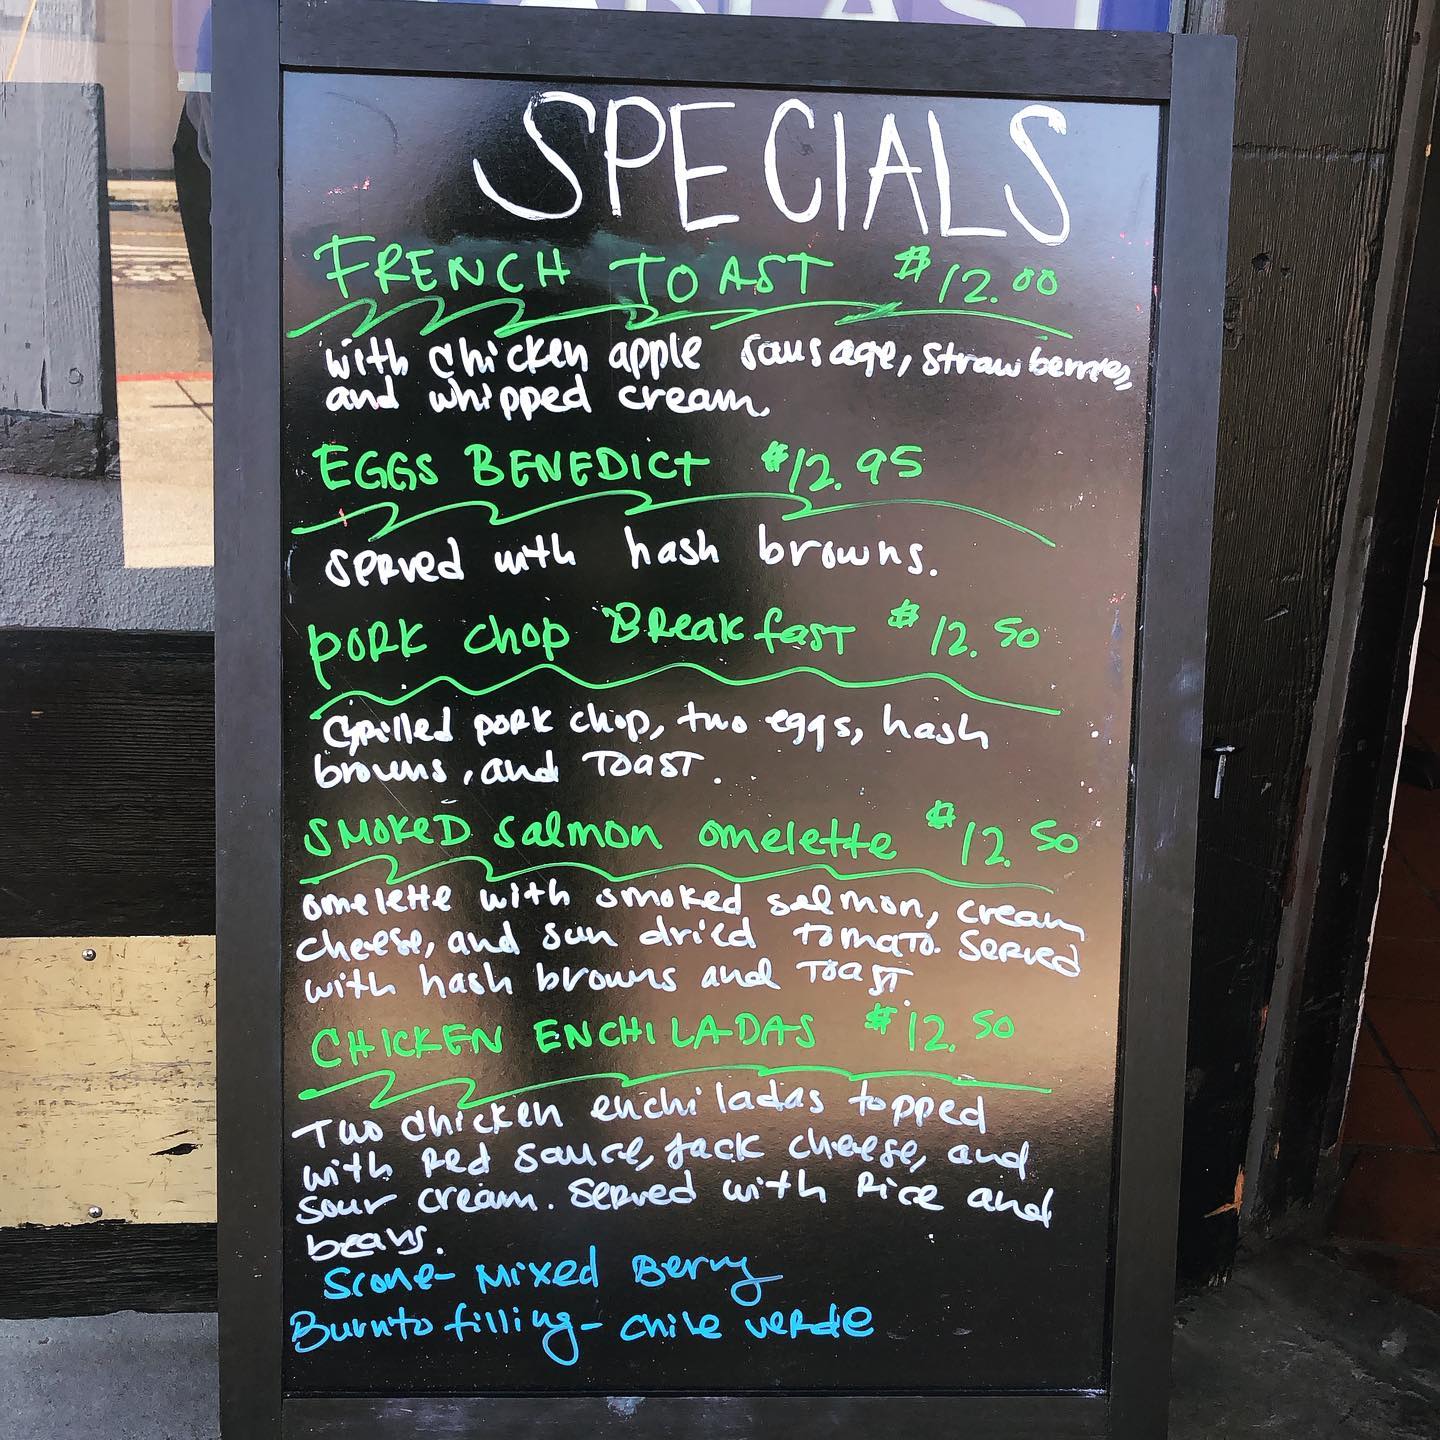 SPECIALS
FRENCH TOAST $12.00
with chicken apple sausage, strawberries,
and whipped cream.
EGGS BENEDICT $12.95
served with hash browns.
PORK CHOP BReakfasT $12.50
Grilled pork chop, two eggs, hash
browns, and TOAST.
SMOKeD Salmon omelette $12.50
omelette with smoked salmon, cream
cheese, and sun dried tomato. Served
with hash browns and Toast
CHICKEN ENCHILADAS $12.50
Two chicken enchiladas topped
with red sauce, jack cheese, and
sour cream. Served with Rice and
beans.
Scone- Mixed Berry
Burrito filling- chile verde